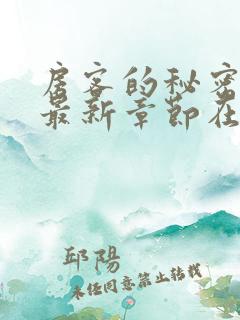 房客的秘密
最新章节在
邱陽
未任同意禁止转载